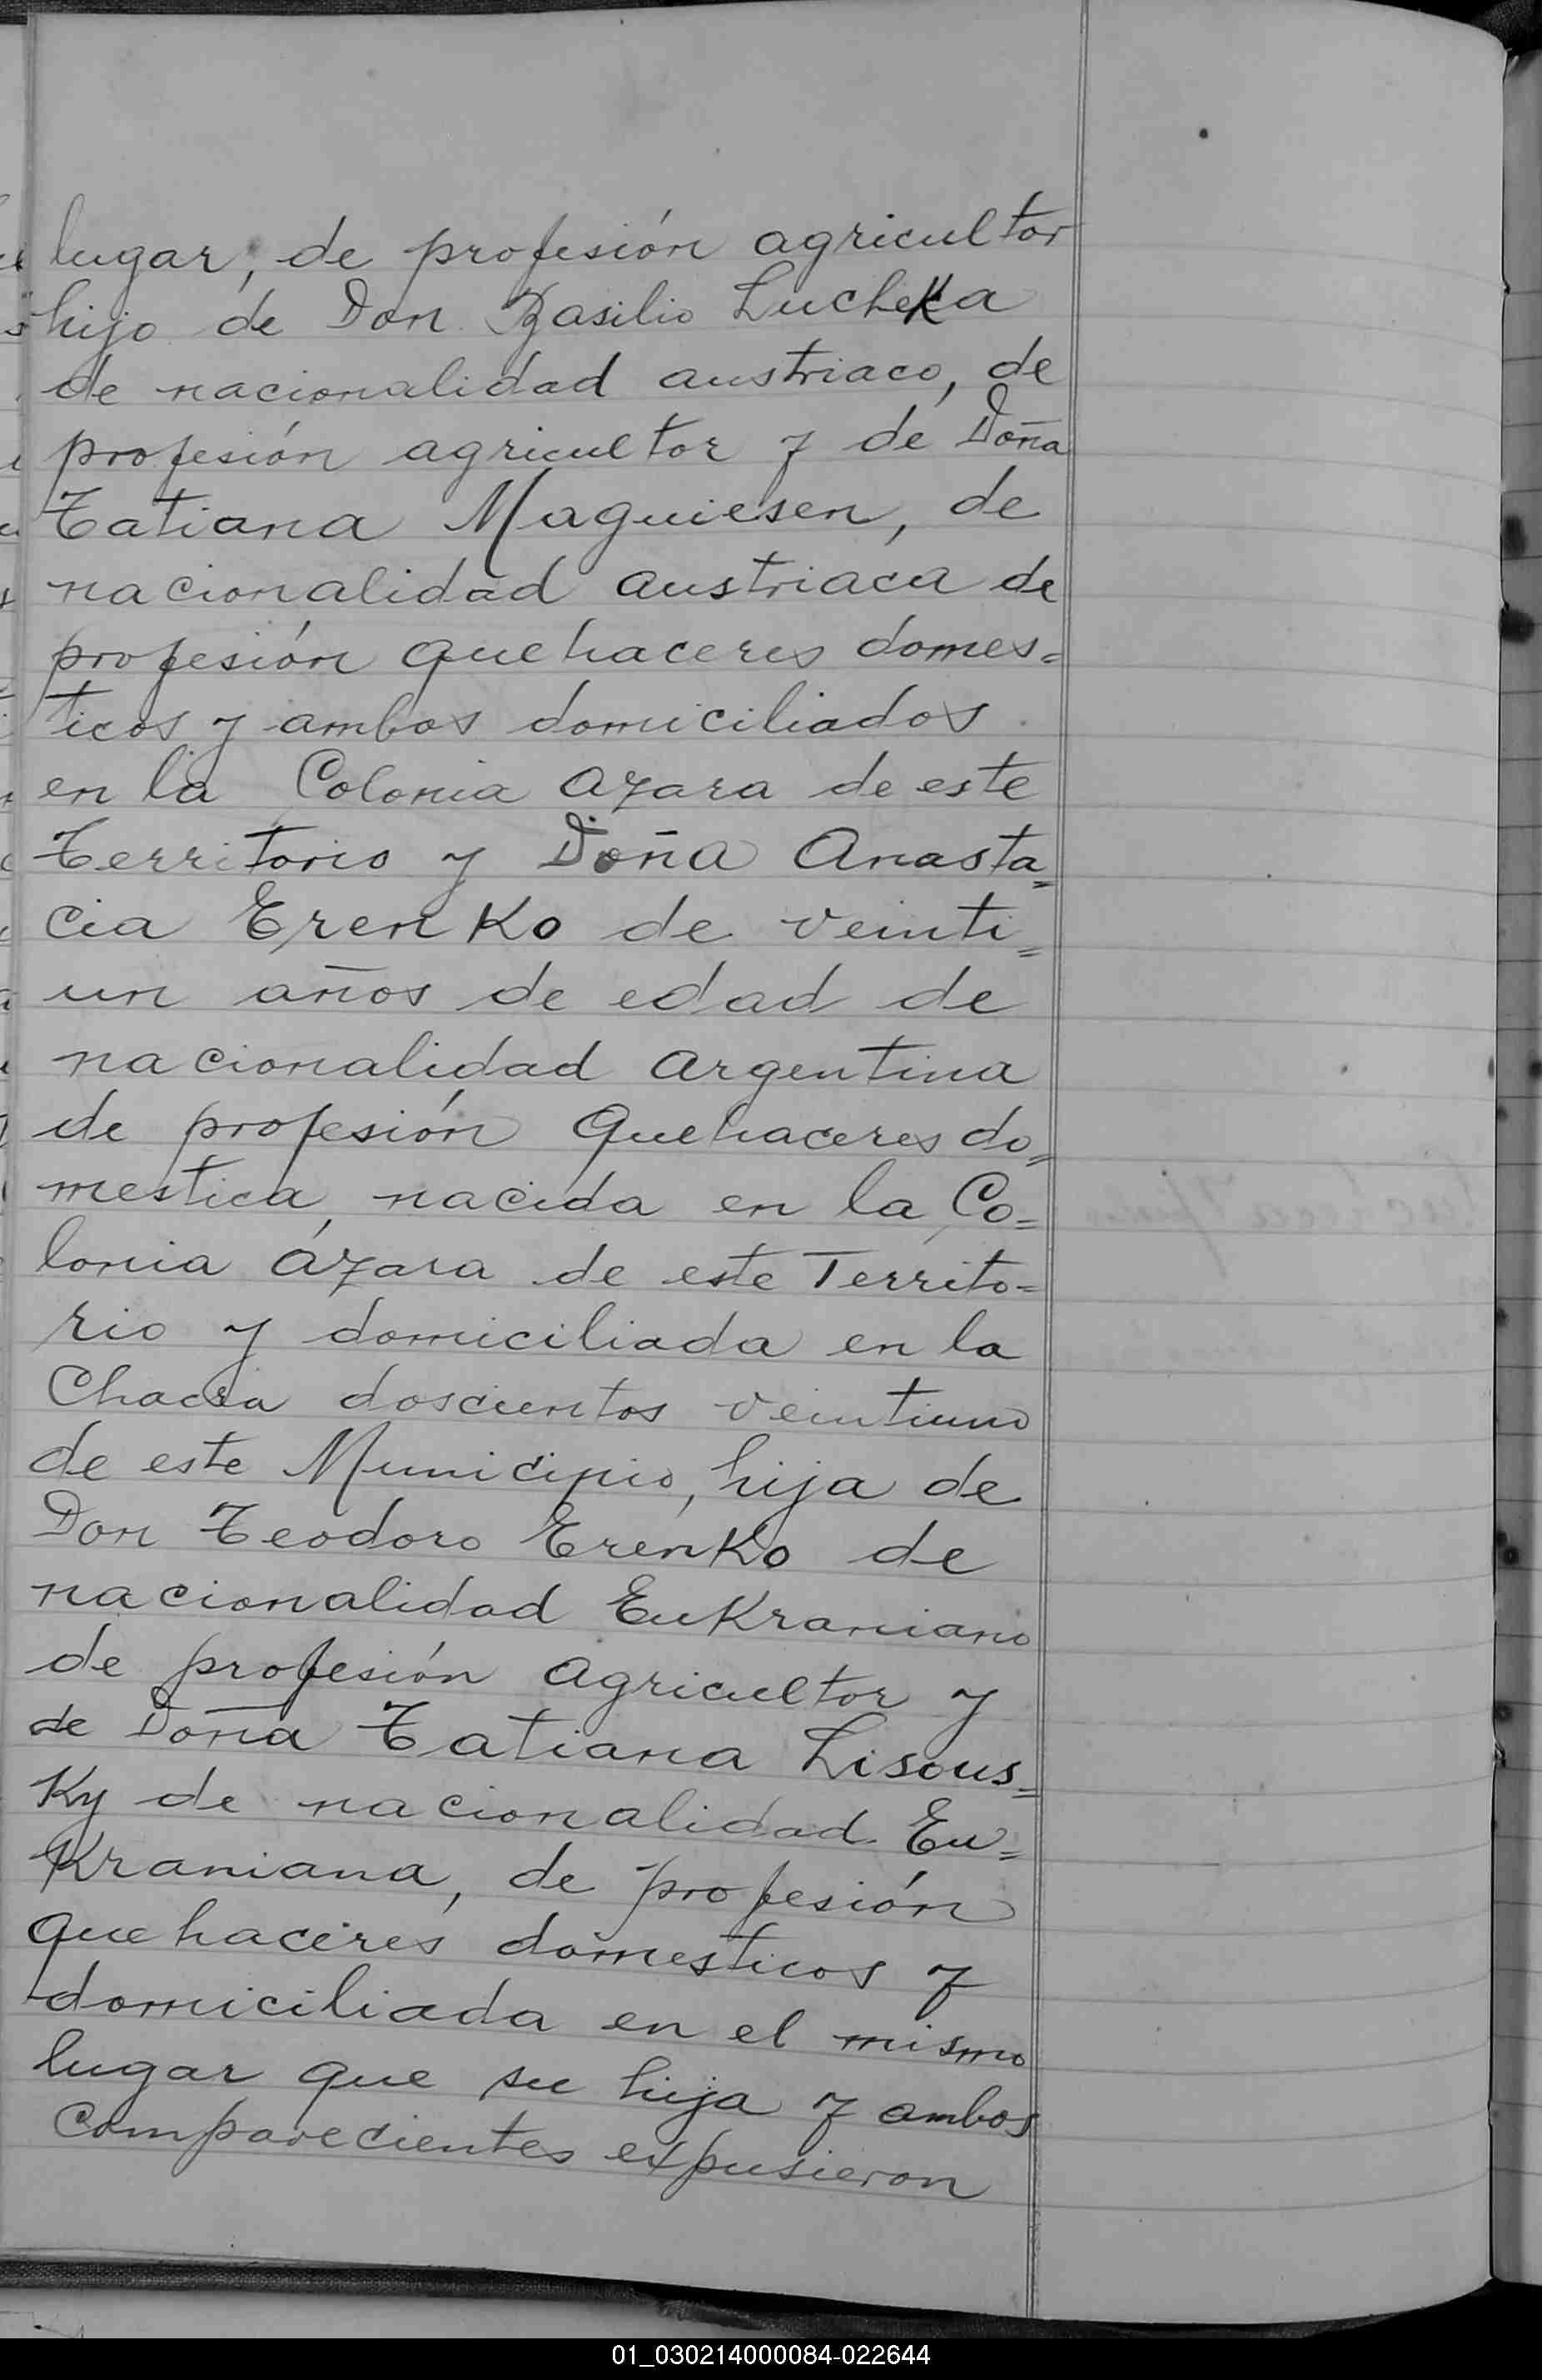 lugar, de profesión agricultor
hijo de Don Basilio Lucheka
de nacionalidad austriaco, de
profesión agricultor y de Doña
Tatiana Maguiesen, de
nacionalidad austriaca de
profesión quehaceres domes=
ticos y ambos domiciliados
en la Colonia Azara de este
Territorio y Doña Anasta=
cia Erenko de veinti=
un años de edad de
nacionalidad argentina
de profesión Quehaceres do=
mestica, nacida en la Co=
lonia Ázara de este Territo=
rio y domiciliada en la
Chacra doscientos veintiuno
de este Municipio, hija de
Don Teodoro Erenko de
nacionalidad Eukraniano
de profesión agricultor y
de Doña Tatiana Lisous=
ky de nacionalidad Eu=
kraniana, de profesión
quehaceres domesticos y
domiciliada en el mismo
lugar que su hija y ambos
comparecientes expusieron
01_030214000084-022644